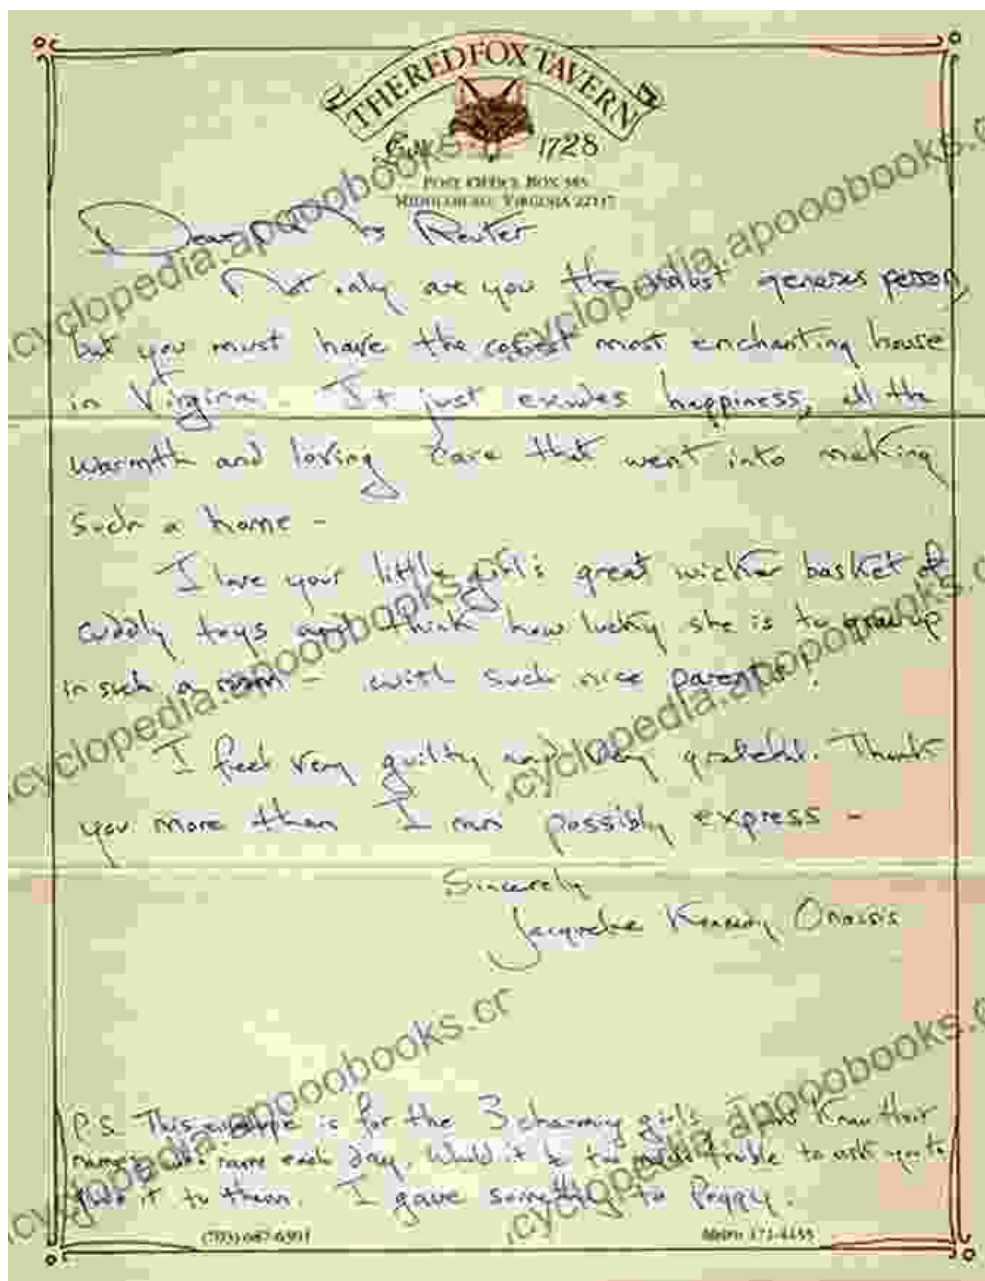 THE RED FOX TAVERN
1728
POST OFFICE BOX 385
MIDDLEBURG, VIRGINIA 22117
Dear Mrs Reuter
Not only are you the most generous person,
but you must have the cosiest most enchanting house
in Virginia. It just exudes happiness, all the
warmth and loving care that went into making
such a home -
I love your little girl's great wicker basket of
cuddly toys and think how lucky she is to grow up
in such a room - with such nice parents.
I feel very guilty and very grateful. Thank
you more than I can possibly express -
Sincerely
Jacqueline Kennedy Onassis
P.S. This envelope is for the 3 charming girls I don't know their
names who came each day. Would it be too much trouble to ask you to
give it to them. I gave something to Peggy.
(703) 687-6301
cyclopedia.apooobooks.cr
cyclopedia.apooobooks.cr
cyclopedia.apooobooks.cr
cyclopedia.apooobooks.cr
cyclopedia.apooobooks.cr
cyclopedia.apooobooks.cr